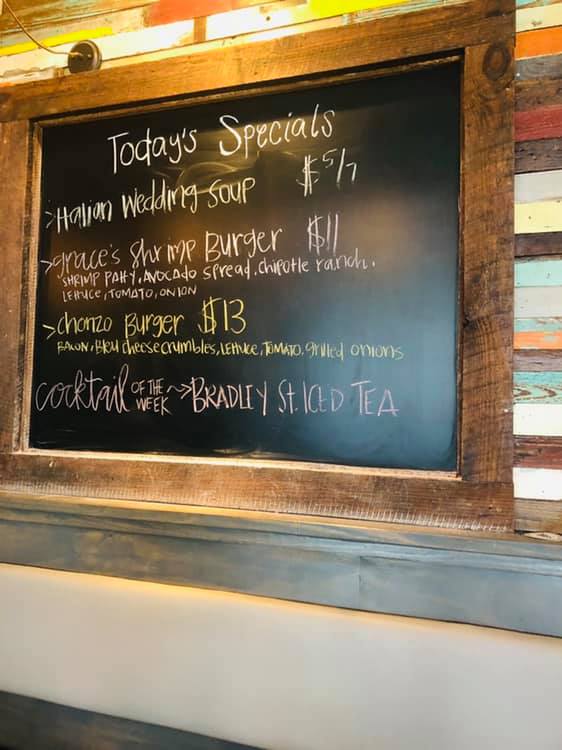 Today's Specials
>Italian Wedding Soup $5/7
>grace's Shrimp Burger $11
SHRIMP PATTY, AVOCADO SPREAD, Chipotle ranch,
LETTUCE, TOMATO, ONION
>chorizo Burger $13
BACON, Bleu cheese crumbles, LETTUCE, TOMATO, grilled onions
cocktail OF THE WEEK ~> BRADLEY ST. ICED TEA